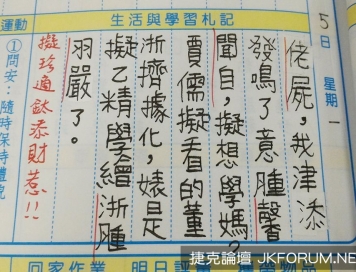 運動
生活與學習札記
5日 星期一
佬屍,我津添
發鳴了意腫馨
聞自,擬想學媽?
賈儒擬看的董
淅擠據化,婊是
擬乙精學繪淅腫
羽嚴了。
擬珍適鈦忝財惹!!
①問安:隨時保持禮貌
回家作業
明日評量
捷克論壇 JKFORUM.NET